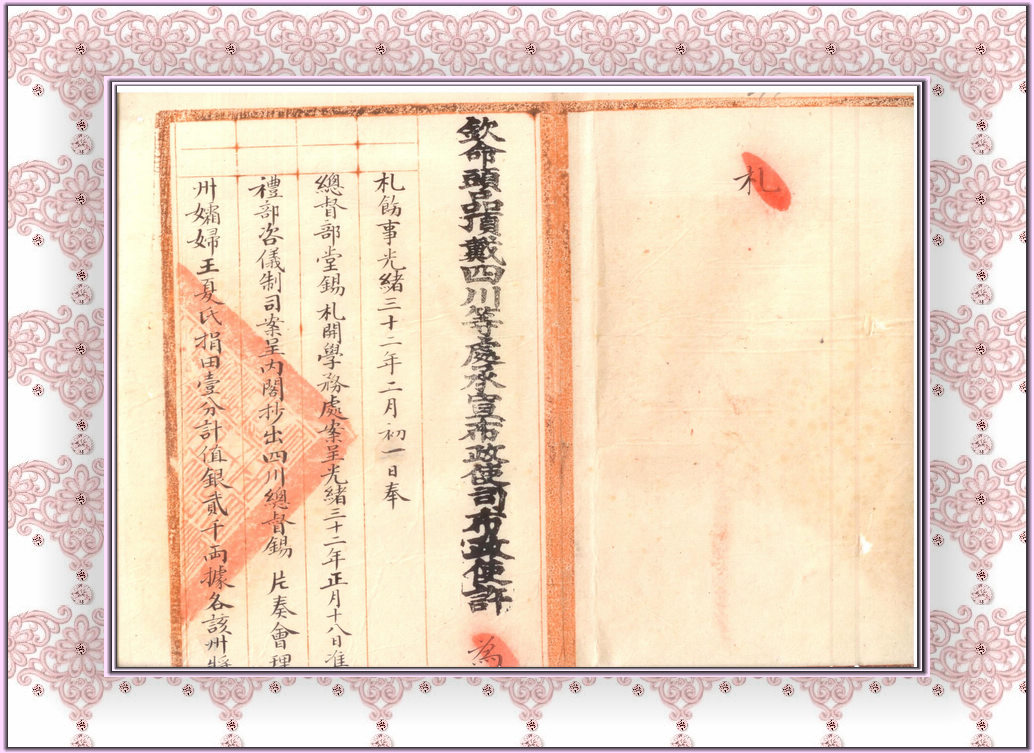 札
欽命頭品頂戴四川等處承宣布政使司布政使許
為
札飭事光緒三十二年二月初一日奉
總督部堂錫 札開學務處案呈光緒三十二年正月十八日准
禮部咨儀制司案呈內閣抄出四川總督錫 片奏會理
州孀婦王夏氏捐田壹分計值銀貳千兩據各該州將